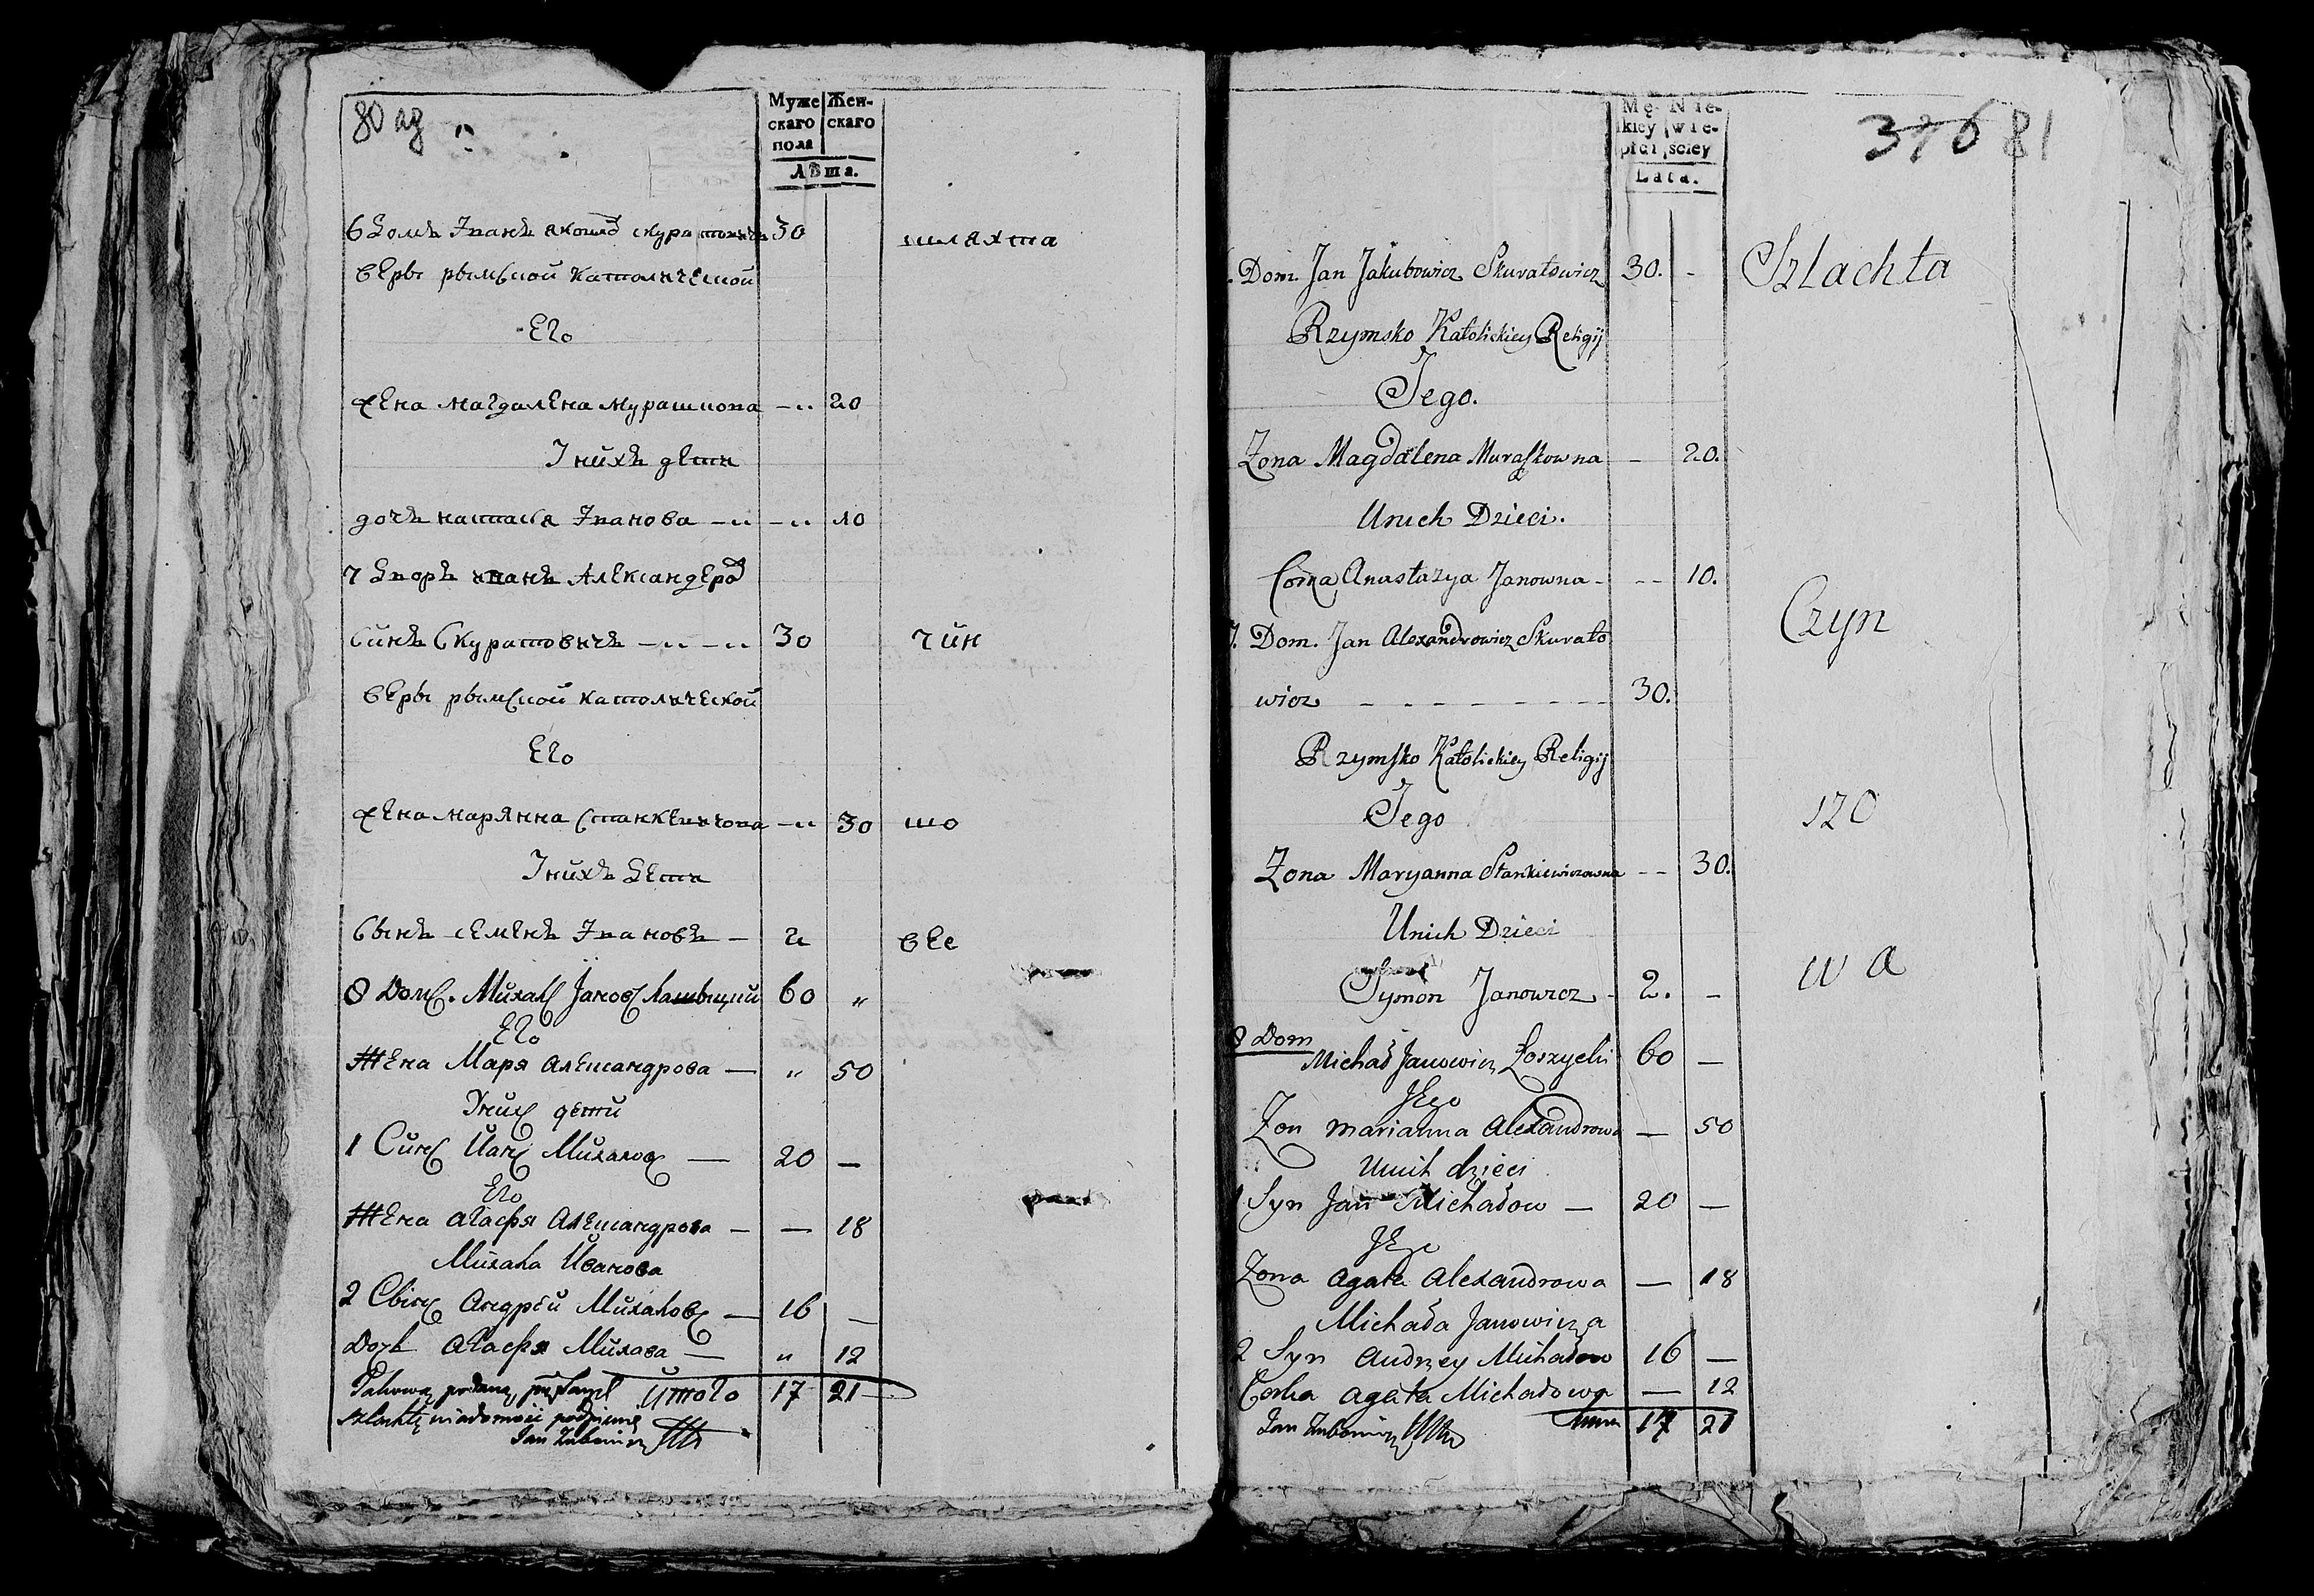 80 ад
Муже Жен-
скаго скаго
пола
Лѣта.
6 Домъ Иванъ Якови скуратовичъ 30 шляхта
вѣры рымской католической
Его
жена магдалена мурашкова — 20
У нихъ дети
дочъ настася Иванова — — 10
7 Дворъ Иванъ Александеров
синъ Скуратовичъ — — 30 чин
вѣры рымской католической
Его
жена марянна Станкевичова — 30 шо
У нихъ дети
сынъ семенъ Ивановъ — 2 вее
8 Домъ. Михалъ Яновъ Лашыцкий 60 „
Его
Жена Маря Александрова — „ 50
У нихъ дети
1 Синъ Иванъ Михаловъ — 20 —
Его
Жена Агафя Александрова — — 18
Михала Иванова
2 Свінъ Андрей Михаловъ — 16 —
Дочъ Агафя Михава — „ 12
Итого 17 21
Szlachtę wiadomość podpisuię
Jan
Mę- Nie-
kiey wie-
płci sciey
Lata.
376 81
Dom. Jan Jakubowicz Skuratowicz 30. - Szlachta
Rzymsko Katolickiey Religij
Jego.
Zona Magdalena Muraszkowna - 20.
Unich Dzieci.
Corka Anastazya Janowna - -- 10.
7. Dom. Jan Alexandrowicz Skurato Czyn
wicz - - - - - - - - - 30.
Rzymsko Katolickiey Religij
Jego 120
Zona Maryanna Stankiewiczowna -- 30.
Unich Dzieci
Symon Janowicz - 2. - wa
8 Dom
Michał Janowicz Łoszycki 60 —
JEgo
Zon Marianna Alexandrowa — 50
Unich dzieci
1 Syn Jan Michałow — 20 —
JEgo
Zona Agata Alexandrowa — 18
Michała Janowicza
2 Syn Andrzey Michałow 16 —
Corka Agata Michałowa — 12
Jan Summa 17 21